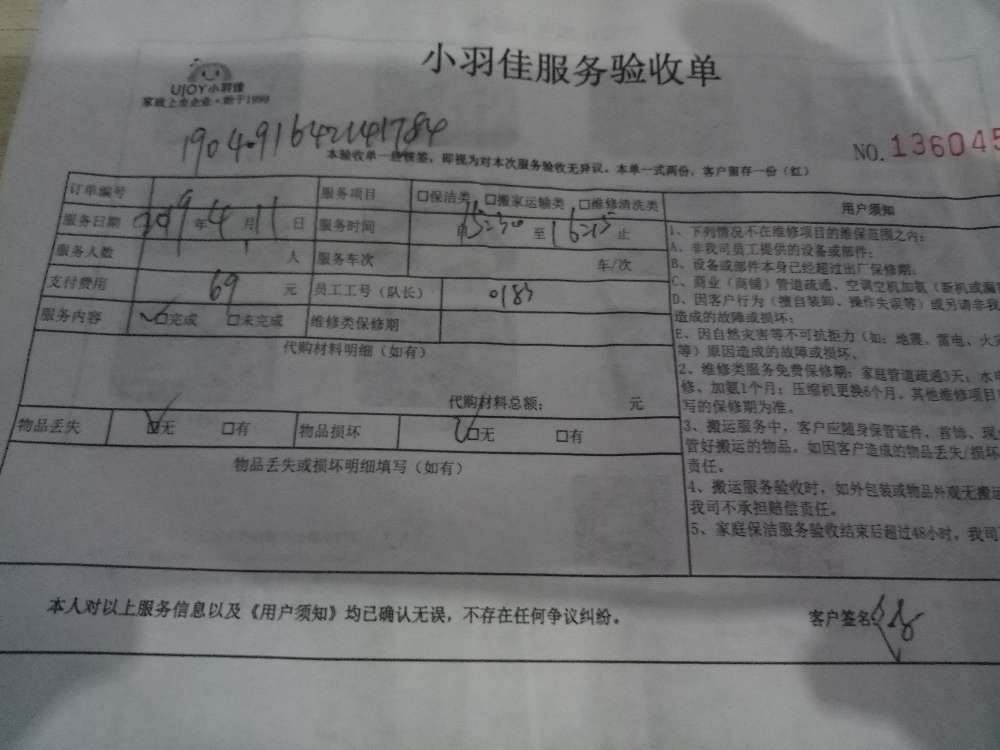 小羽佳服务验收单
UJOY小羽佳
家政上业企业·始于1999
NO. 136045
本验收单一经核签，即视为对本次服务验收无异议。本单一式两份，客户留存一份（红）
订单编号 服务项目 □保洁类 □搬家运输类 □维修清洗类
服务日期 2019 年 4 月 11 日 服务时间 至 16:15 止
服务人数 人 服务车次 车/次
支付费用 69 元 员工工号（队长） 0183
服务内容 ✓□完成 □未完成 维修类保修期
代购材料明细（如有）
代购材料总额： 元
物品丢失 ☑无 □有 物品损坏 ✓□无 □有
物品丢失或损坏明细填写（如有）
用户须知
1、下列情况不在维修项目的维保范围之内：
A、非我司员工提供的设备或部件；
B、设备或部件本身已经超过出厂保修期；
C、商业（商铺）管道疏通、空调空机加氨（新机或漏
D、因客户行为（擅自装卸、操作失误等）或另请非我
造成的故障或损坏；
E、因自然灾害等不可抗拒力（如：地震、雷电、火灾
等）原因造成的故障或损坏。
2、维修类服务免费保修期：家庭管道疏通3天；水电
修、加氨1个月；压缩机更换6个月。其他维修项目
写的保修期为准。
3、搬运服务中，客户应随身保管证件、首饰、现
管好搬运的物品。如因客户造成的物品丢失/损坏
责任。
4、搬运服务验收时，如外包装或物品外观无搬运
我司不承担赔偿责任。
5、家庭保洁服务验收结束后超过48小时，我司
本人对以上服务信息以及《用户须知》均已确认无误，不存在任何争议纠纷。
客户签名